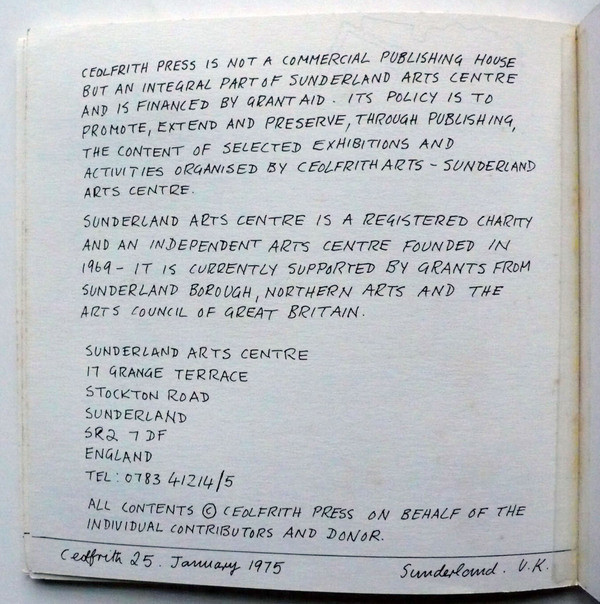 CEOLFRITH PRESS IS NOT A COMMERCIAL PUBLISHING HOUSE
BUT AN INTEGRAL PART OF SUNDERLAND ARTS CENTRE
AND IS FINANCED BY GRANT AID. ITS POLICY IS TO
PROMOTE, EXTEND AND PRESERVE, THROUGH PUBLISHING,
THE CONTENT OF SELECTED EXHIBITIONS AND
ACTIVITIES ORGANISED BY CEOLFRITH ARTS - SUNDERLAND
ARTS CENTRE.
SUNDERLAND ARTS CENTRE IS A REGISTERED CHARITY
AND AN INDEPENDENT ARTS CENTRE FOUNDED IN
1969 - IT IS CURRENTLY SUPPORTED BY GRANTS FROM
SUNDERLAND BOROUGH, NORTHERN ARTS AND THE
ARTS COUNCIL OF GREAT BRITAIN.
SUNDERLAND ARTS CENTRE
17 GRANGE TERRACE
STOCKTON ROAD
SUNDERLAND
SR2 7DF
ENGLAND
TEL: 0783 41214/5
ALL CONTENTS © CEOLFRITH PRESS ON BEHALF OF THE
INDIVIDUAL CONTRIBUTORS AND DONOR.
Ceolfrith 25. January 1975
Sunderland. U.K.